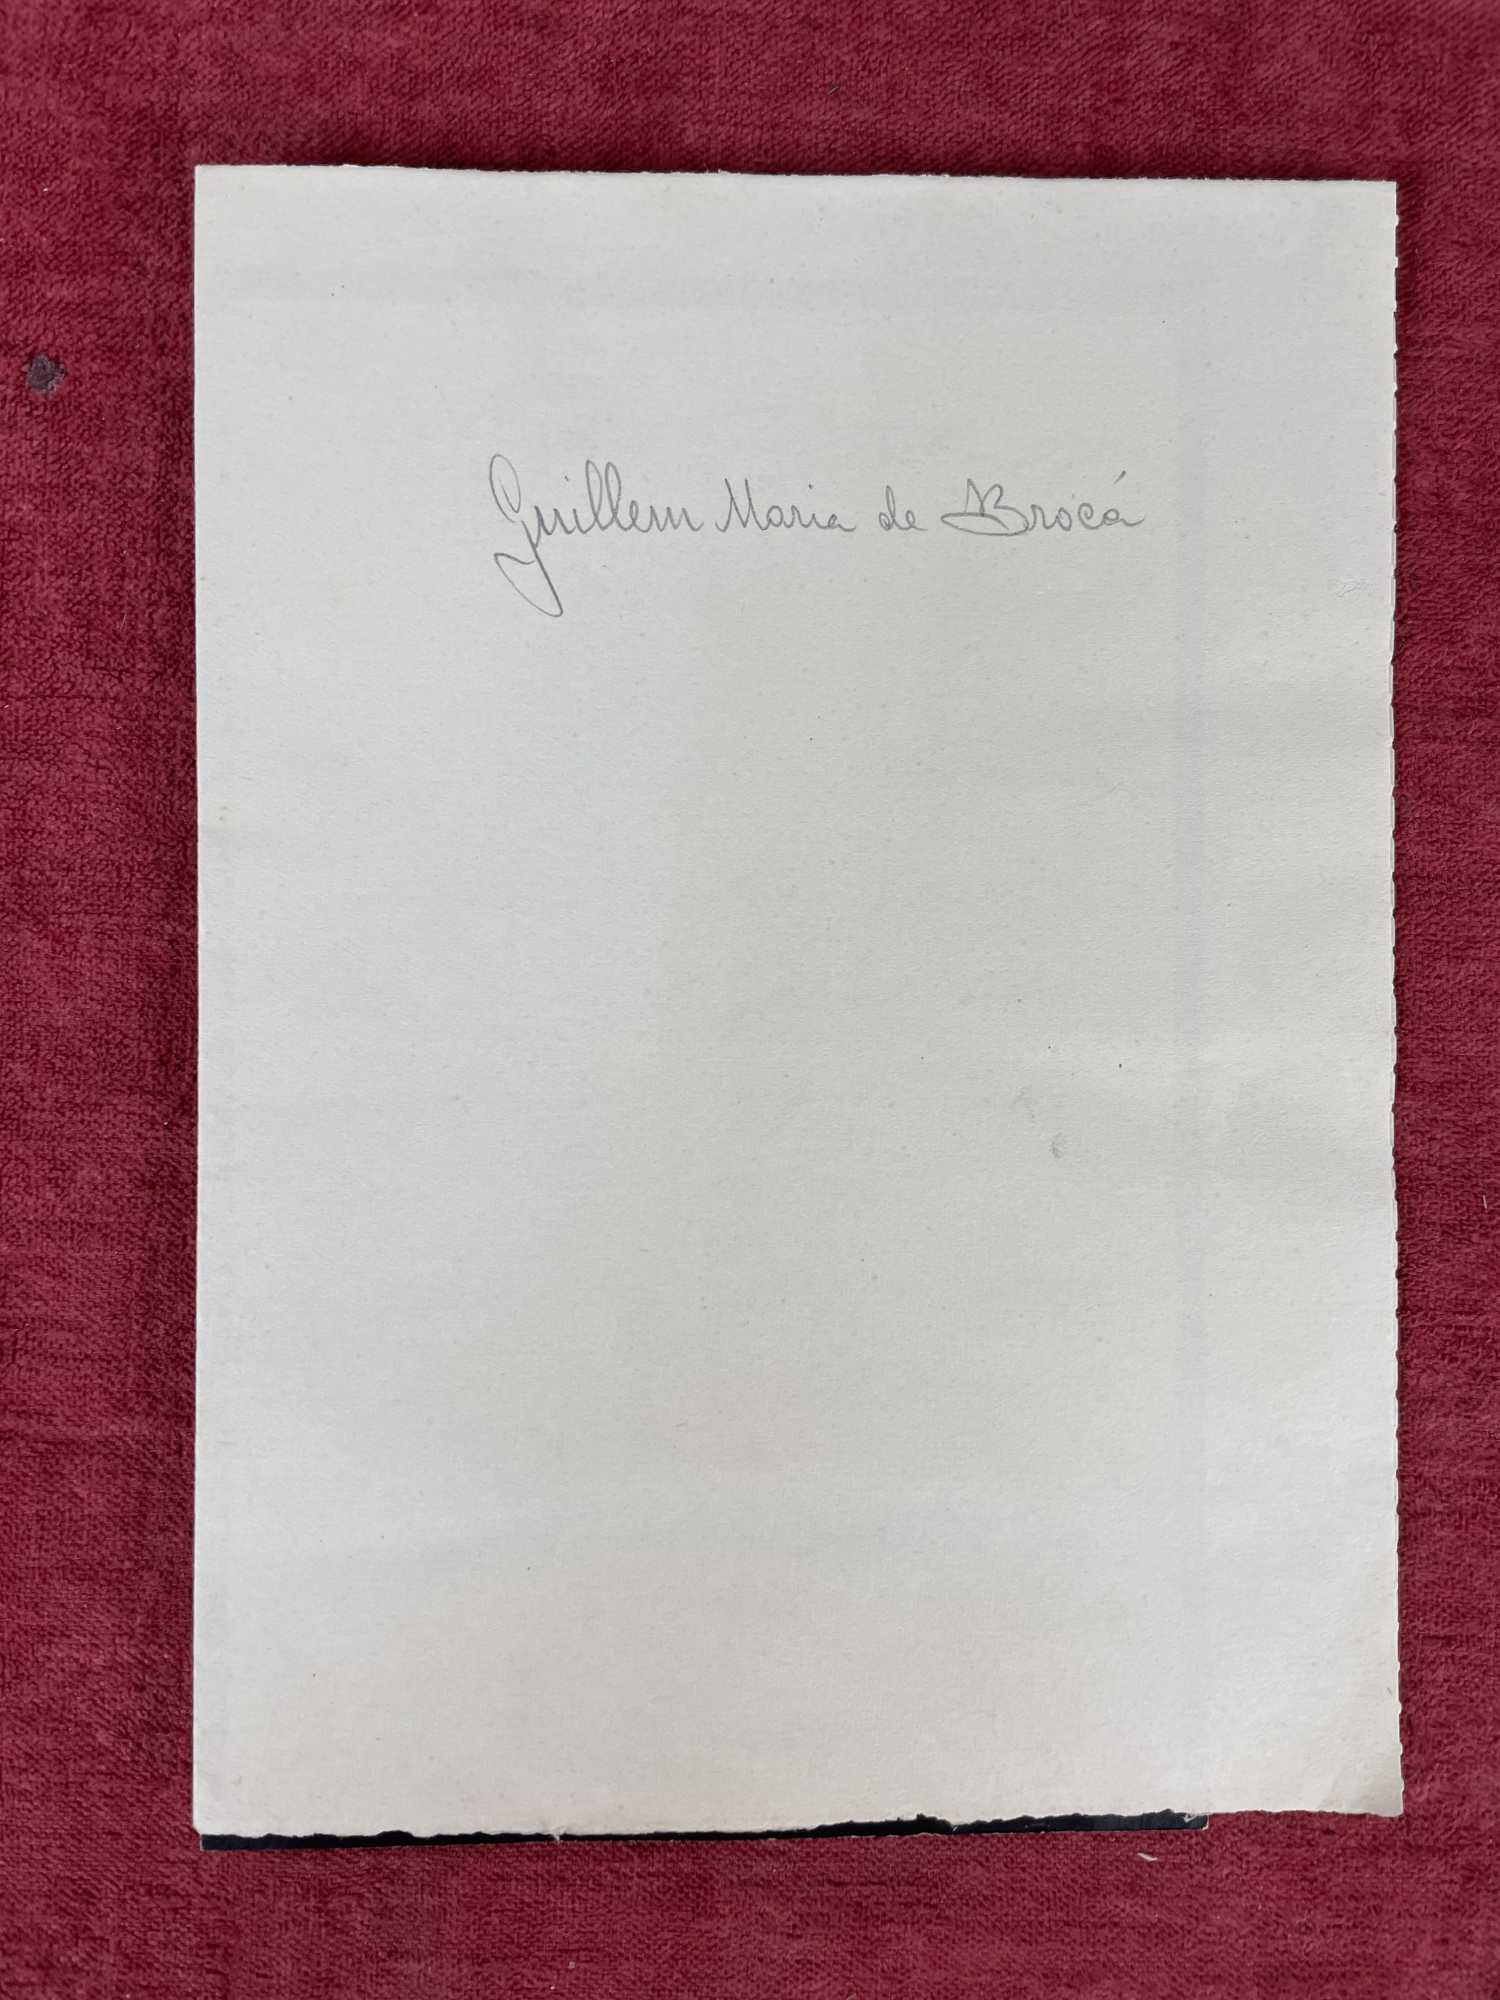 Guillem Maria de Brocá